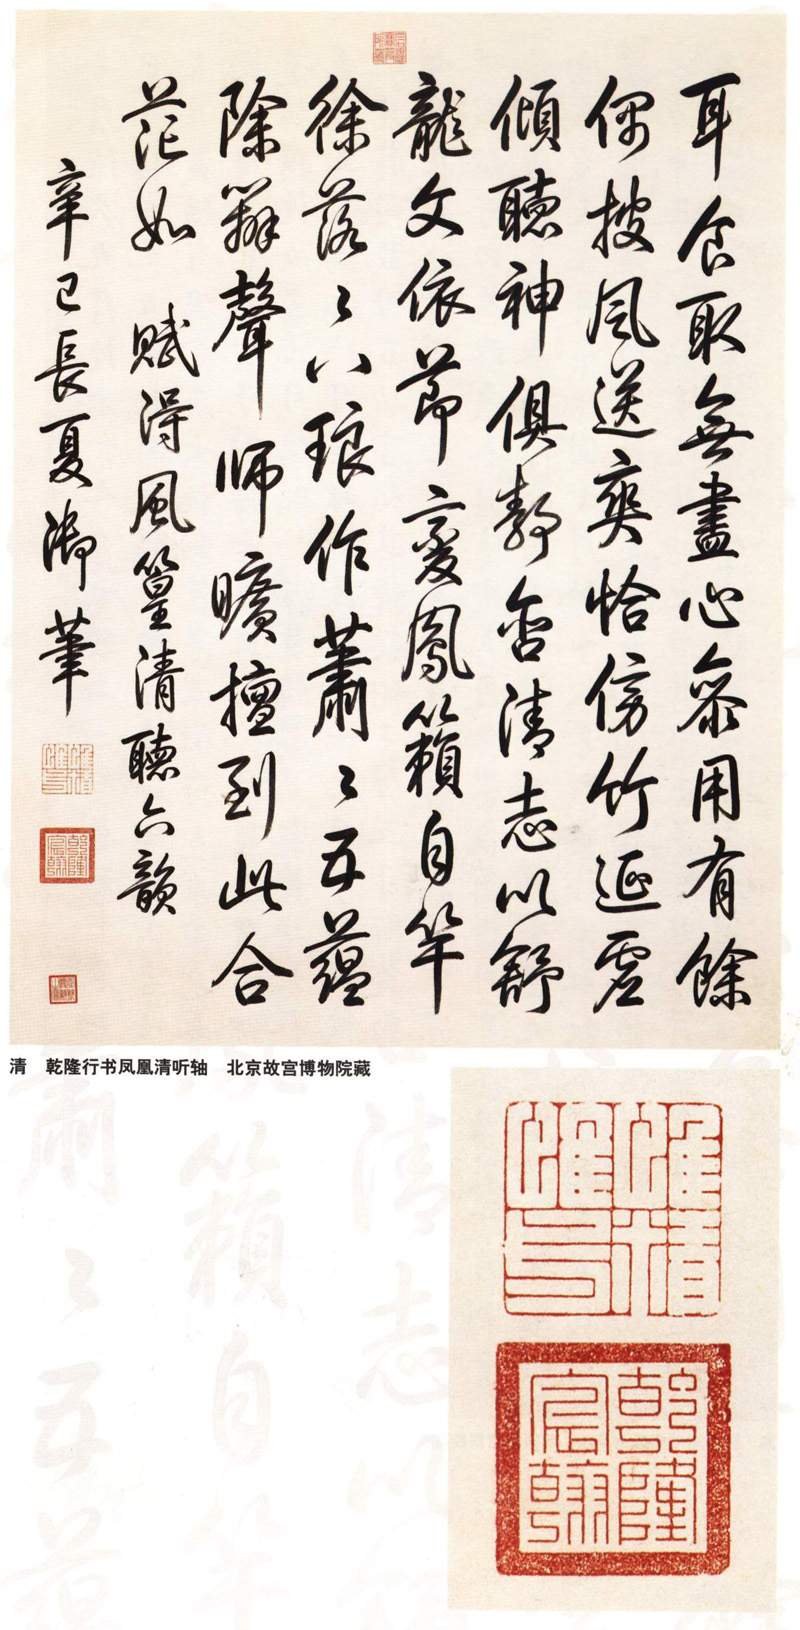 耳食取無盡心叅用有餘
偶披風送爽恰傍竹延虛
傾聽神俱靜含清志以舒
龍文依節變鳳籟自竿
徐落〻八琅作蕭〻五蘊
除辨聲師曠擅到此合
茫如 賦得風篁清聽六韻
辛巳長夏御筆
清 乾隆行书凤凰清听轴 北京故宫博物院藏
乾隆宸翰